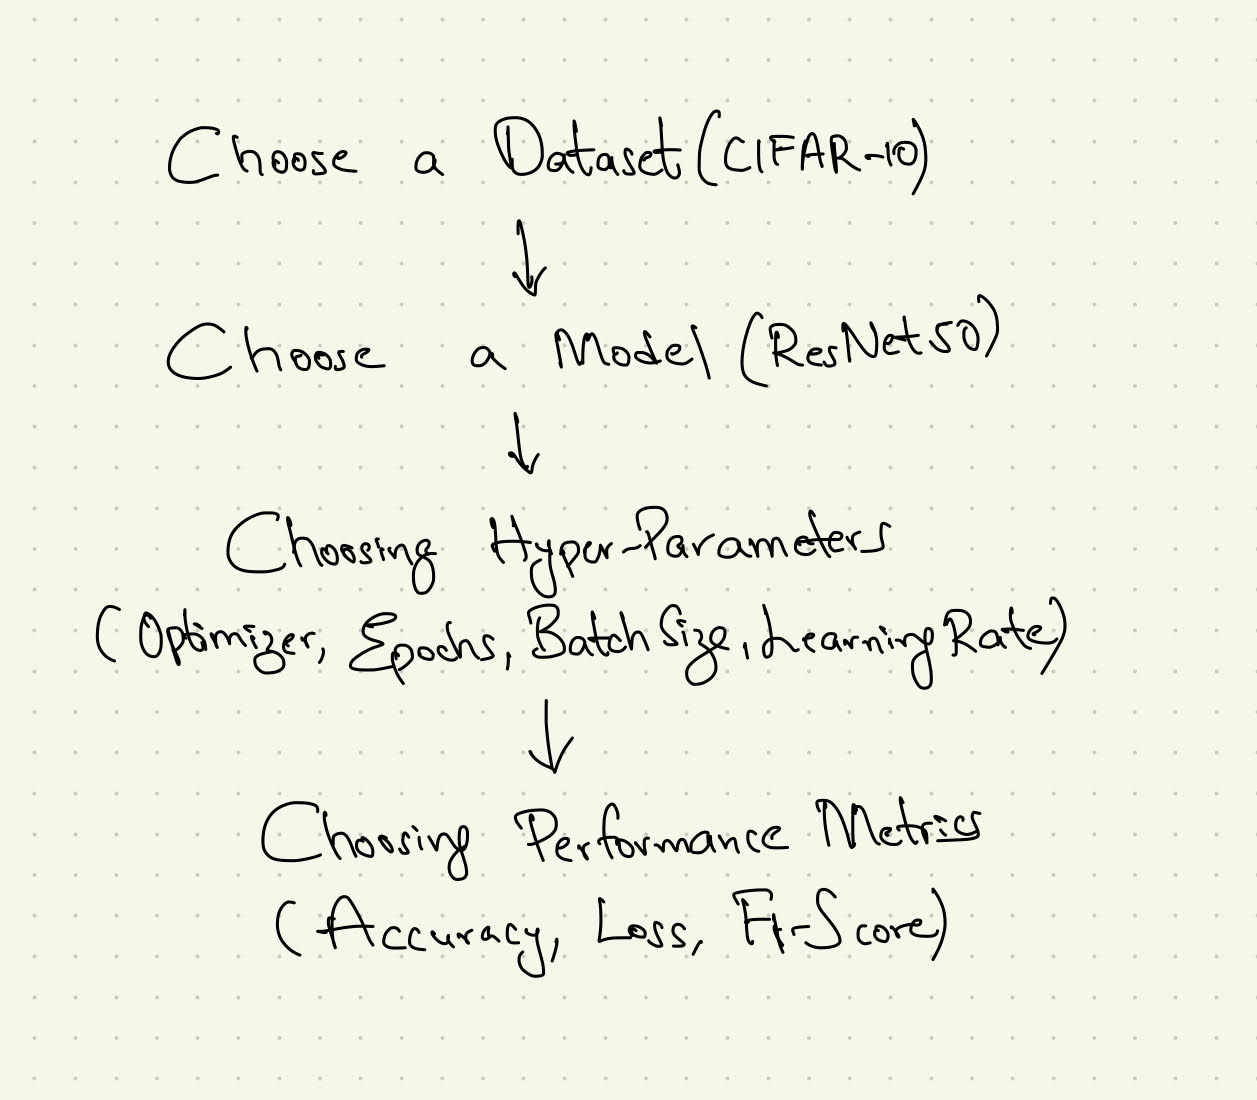 Choose a Dataset (CIFAR-10)
Choose a Model (ResNet50)
Choosing Hyper-Parameters
(Optimizer, Epochs, Batch Size, Learning Rate)
Choosing Performance Metrics
(Accuracy, Loss, F1-Score)